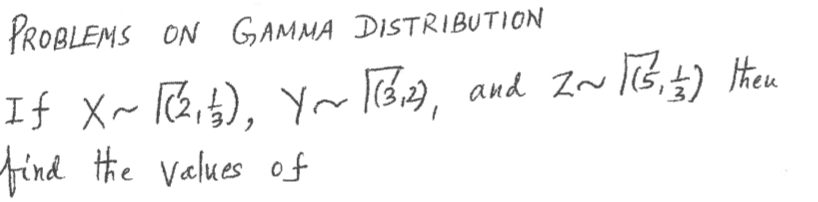 PROBLEMS ON GAMMA DISTRIBUTION
If X ~ Γ(2, 1/3), Y ~ Γ(3, 2), and Z ~ Γ(5, 1/3) then
find the values of